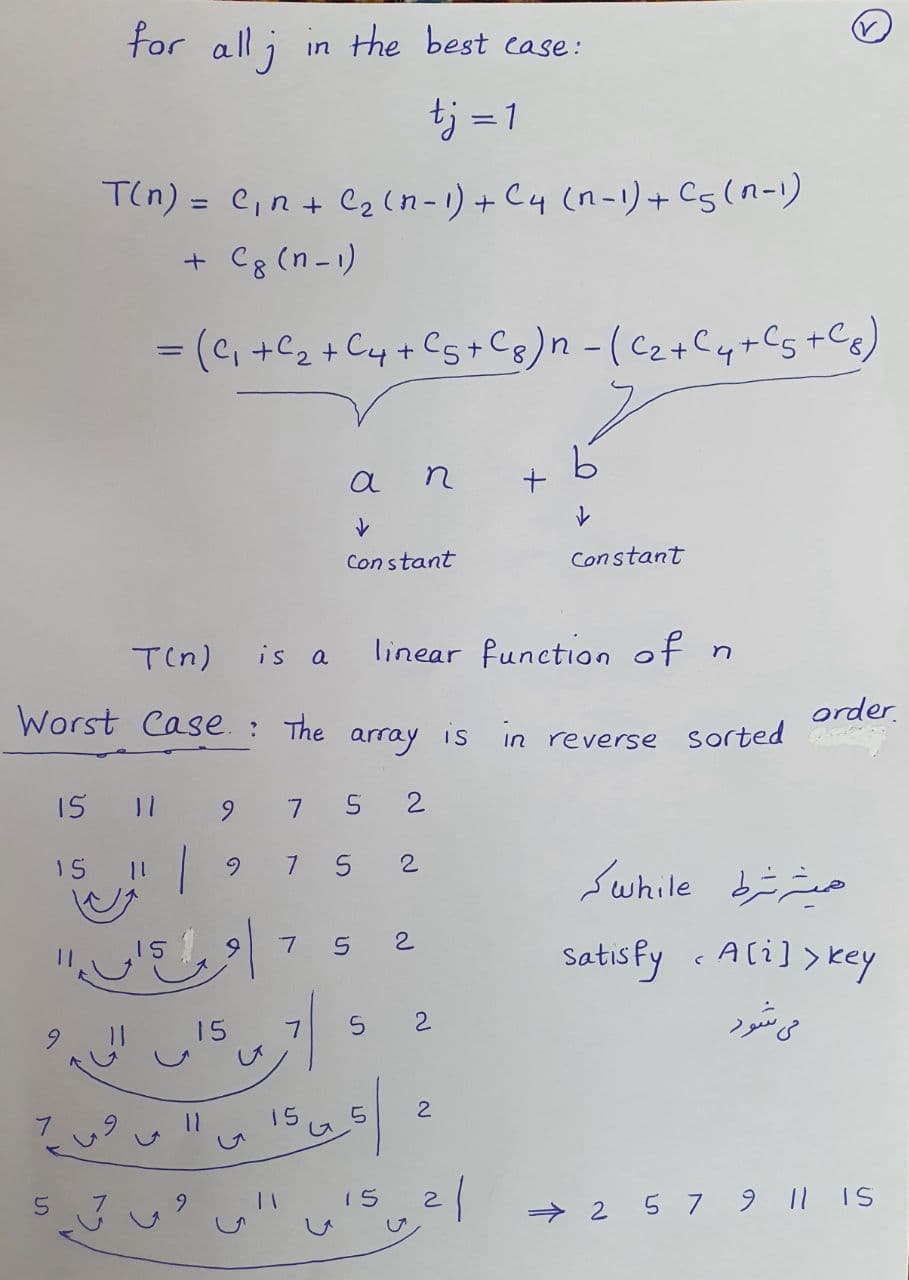 ۷
for all j in the best case:
tj = 1
T(n) = C₁n + C₂(n-1) + C₄(n-1) + C₅(n-1)
+ C₈(n-1)
= (C₁+C₂+C₄+C₅+C₈)n - (C₂+C₄+C₅+C₈)
a n + b
↓ ↓
Constant Constant
T(n) is a linear function of n
Worst Case : The array is in reverse sorted order.
15 11 9 7 5 2
15 11 | 9 7 5 2
11 15 9 | 7 5 2
9 11 15 7 | 5 2
7 9 11 15 5 | 2
5 7 9 11 15 2 | ⇒ 2 5 7 9 11 15
شرط while که
satisfy ، A[i] > key
می شود